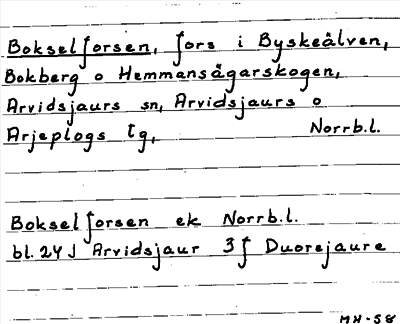 Bokselforsen, fors i Byskeälven,
Bokberg o Hemmansägarskogen,
Arvidsjaurs sn, Arvidsjaurs o
Arjeplogs tg, Norrb.l.
Bokselforsen ek Norrb.l.
bl. 24 J Arvidsjaur 3 f Duorejaure
MH-58